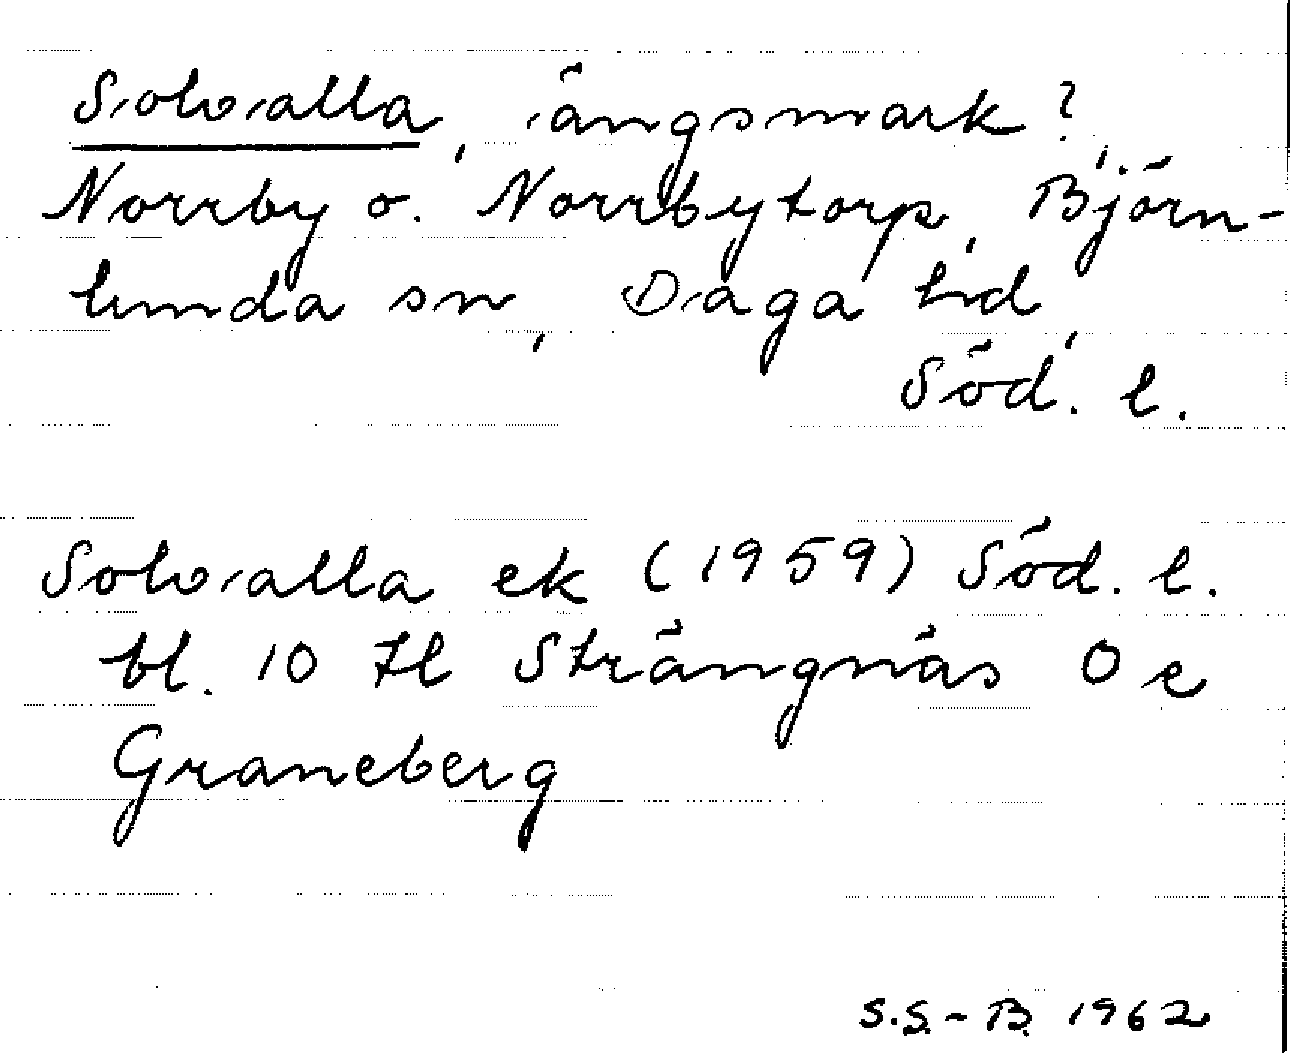 Solvalla, ängsmark?
Norrby o. Norrbytorp, Björn-
lunda sn, Daga hd,
Söd. l.
Solvalla ek (1959) Söd. l.
bl. 10 Il Strängnäs 0 e
Graneberg
S.S.-B. 1962